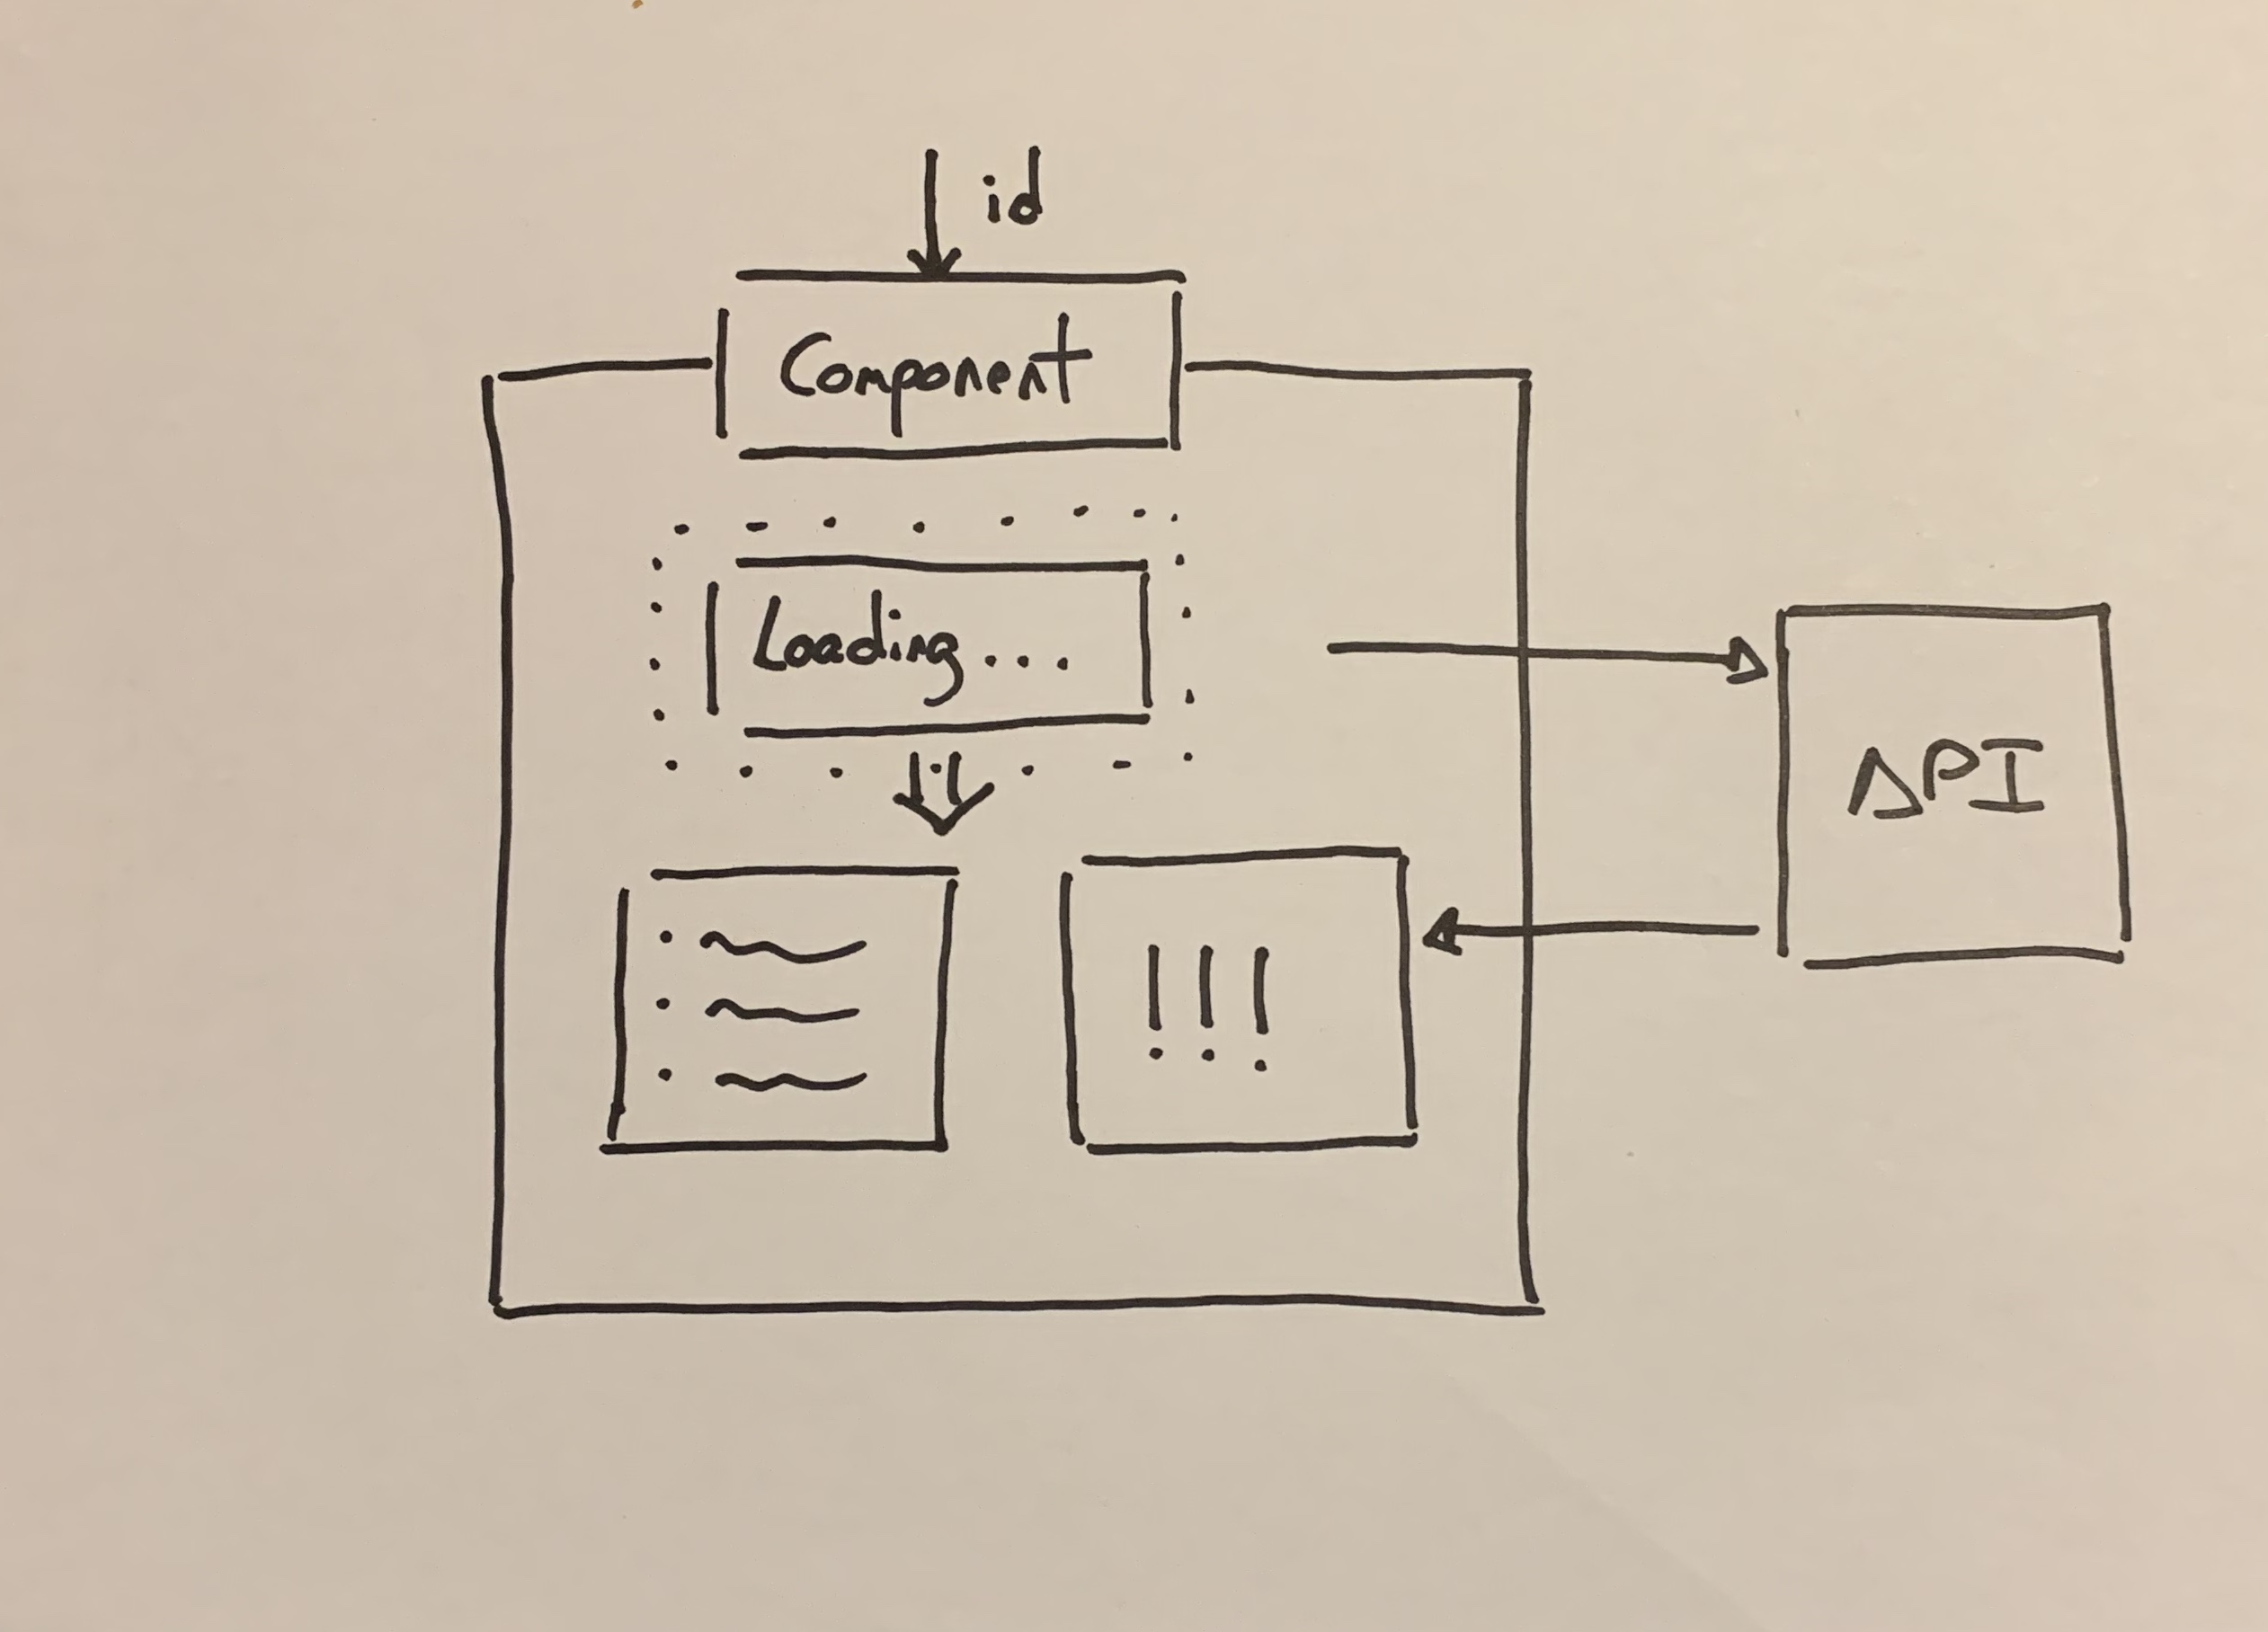 id
Component
Loading...
API
!!!